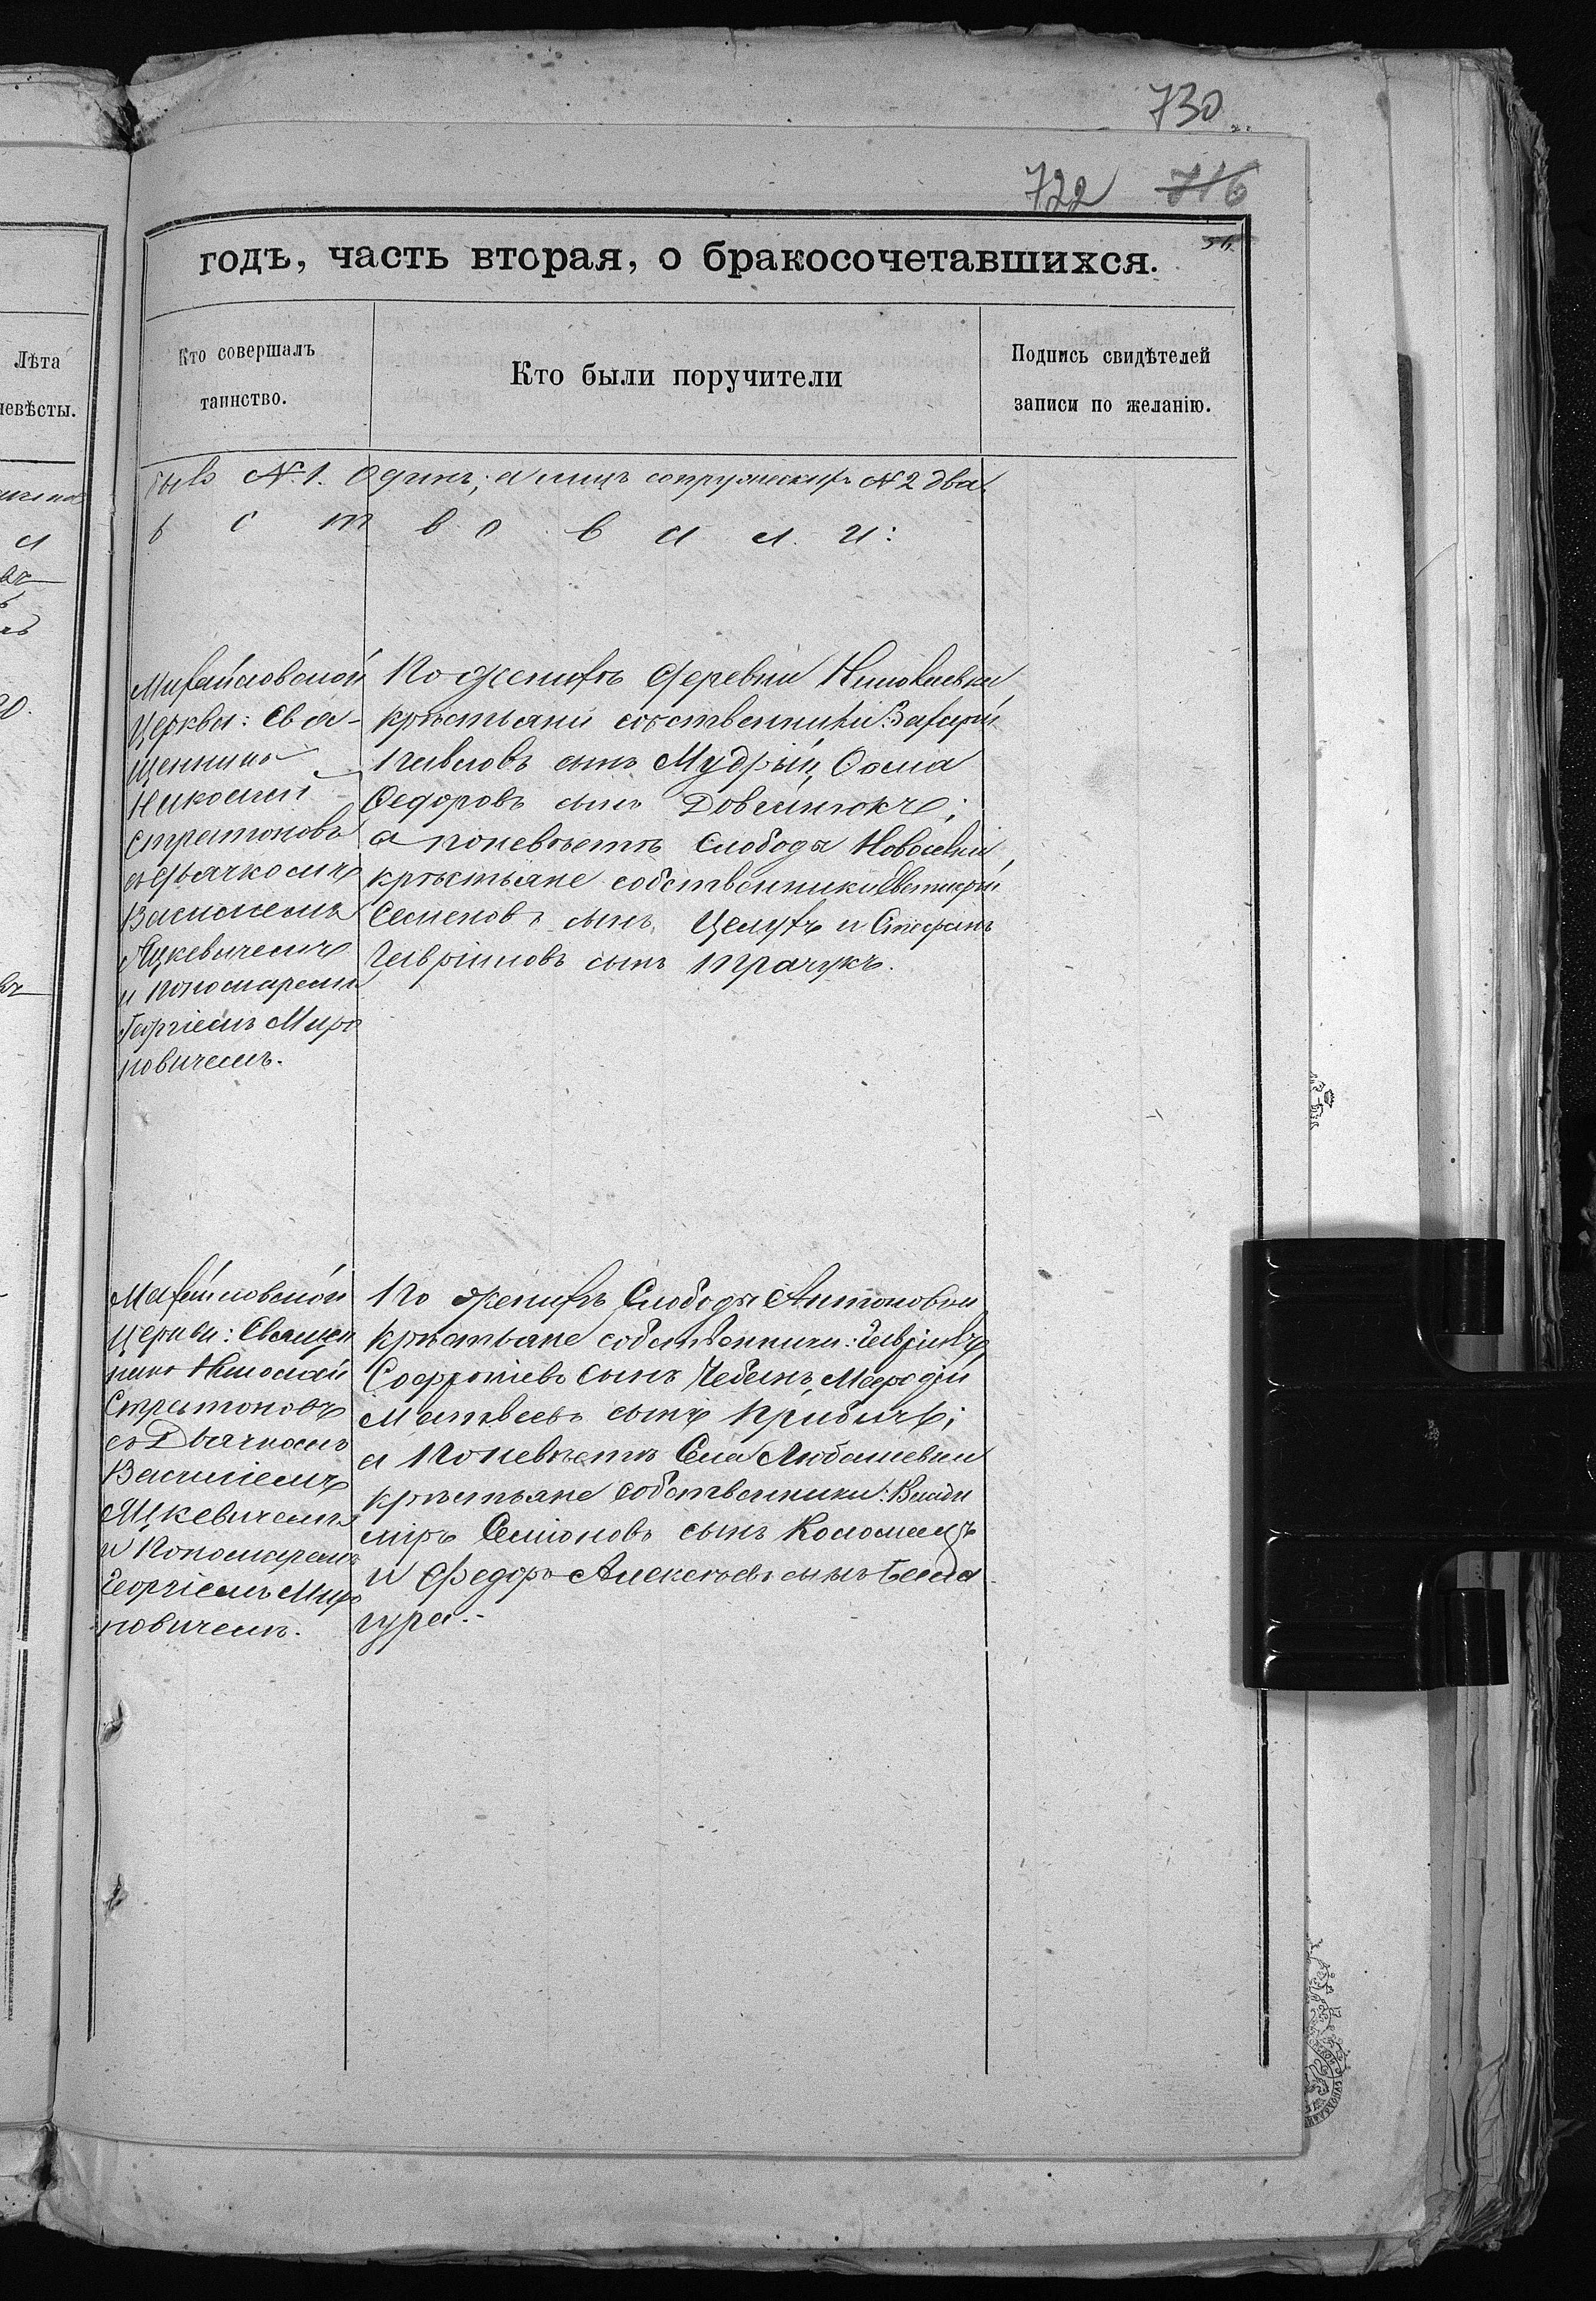 730
722 716
годъ, часть вторая, о бракосочетавшихся.
Лѣта
невѣсты.
Кто совершалъ
таинство.
Кто были поручители
Подпись свидѣтелей
записи по желанію.
было №1. Одинъ; а лицъ супружескихъ №2 два.
в с т в о в а л и:
Михайловской
Церкви: Свя-
щенникъ
Николай
Стратоновъ
съ Дьячкомъ
Василіемъ
Яцкевичемъ
и Пономаремъ
Георгіемъ Миро
новичемъ.
По женихѣ Деревни Николаевки
крестьяни собственники: Захарій
Павловъ сынъ Мудрый, Ѳома
Ѳедоровъ сынъ Довгинюкъ;
а поневѣстѣ Слободы Новоселки
крѣстьяне собственники
Семеновъ сынъ Целухъ и Стефанъ
Гавріиловъ сынъ Ткачукъ.
Михайловской
Церкви: Священ
никъ Николай
Стратоновъ
съ Дьячкомъ
Василіемъ
Яцкевичемъ
и Пономаремъ
Георгіемъ Миро
новичемъ.
По женихѣ Слободы Антоновки
Крѣстьяне собственники: Гавріилъ
Софроніевъ сынъ Чебанъ, Мефодій
Матвѣевъ сынъ
а поневѣстѣ Села Любашевки
крѣстьяне собственники: Влади
міръ Семіоновъ сынъ Коломѣецъ
и Федоръ Алексѣевъ сынъ Бала
гура.-